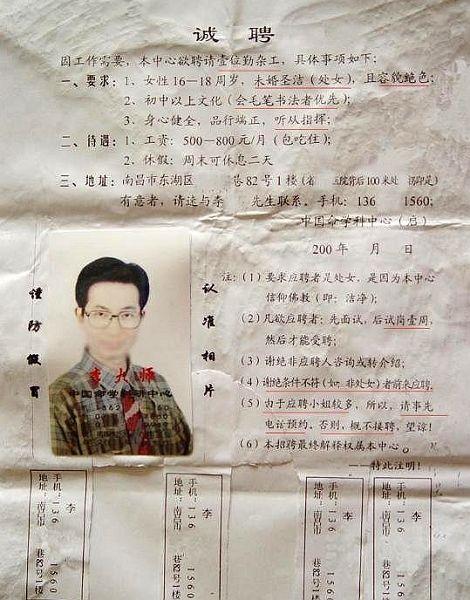 诚聘
因工作需要，本中心欲聘请壹位勤杂工，具体事项如下：
一、要求：1、女性16—18周岁，未婚圣洁（处女），且容貌艳色；
2、初中以上文化（会毛笔书法者优先）；
3、身心健全，品行端正，听从指挥；
二、待遇：1、工资：500—800元/月（包吃住）；
2、休假：周末可休息二天
三、地址：南昌市东湖区 巷82号1楼（省 医院背后100米处 拐仰是）
有意者，请速与李 先生联系。手机：136 1560；
中国命学科中心（启）
200 年 月 日
谨防假冒
认准相片
李大师
中国命学科研中心
注：（1）要求应聘者是处女，是因为本中心
信仰佛教（即：洁净）；
（2）凡欲应聘者：先面试，后试岗壹周，
然后才能受聘；
（3）谢绝非应聘人咨询或转介绍；
（4）谢绝条件不符（如：非处女）者前来应聘，
（5）由于应聘小姐较多，所以，请事先
电话预约，否则，概不接聘，望谅！
（6）本招聘最终解释权属本中心。
——特此注明！
李
手机：136 1560
地址：南昌市 巷82号1楼
李
手机：136 1560
地址：南昌市 巷82号1楼
李
手机：136 1560
地址：南昌市 巷82号1楼
李
手机：136 1560
地址：南昌市 巷82号1楼